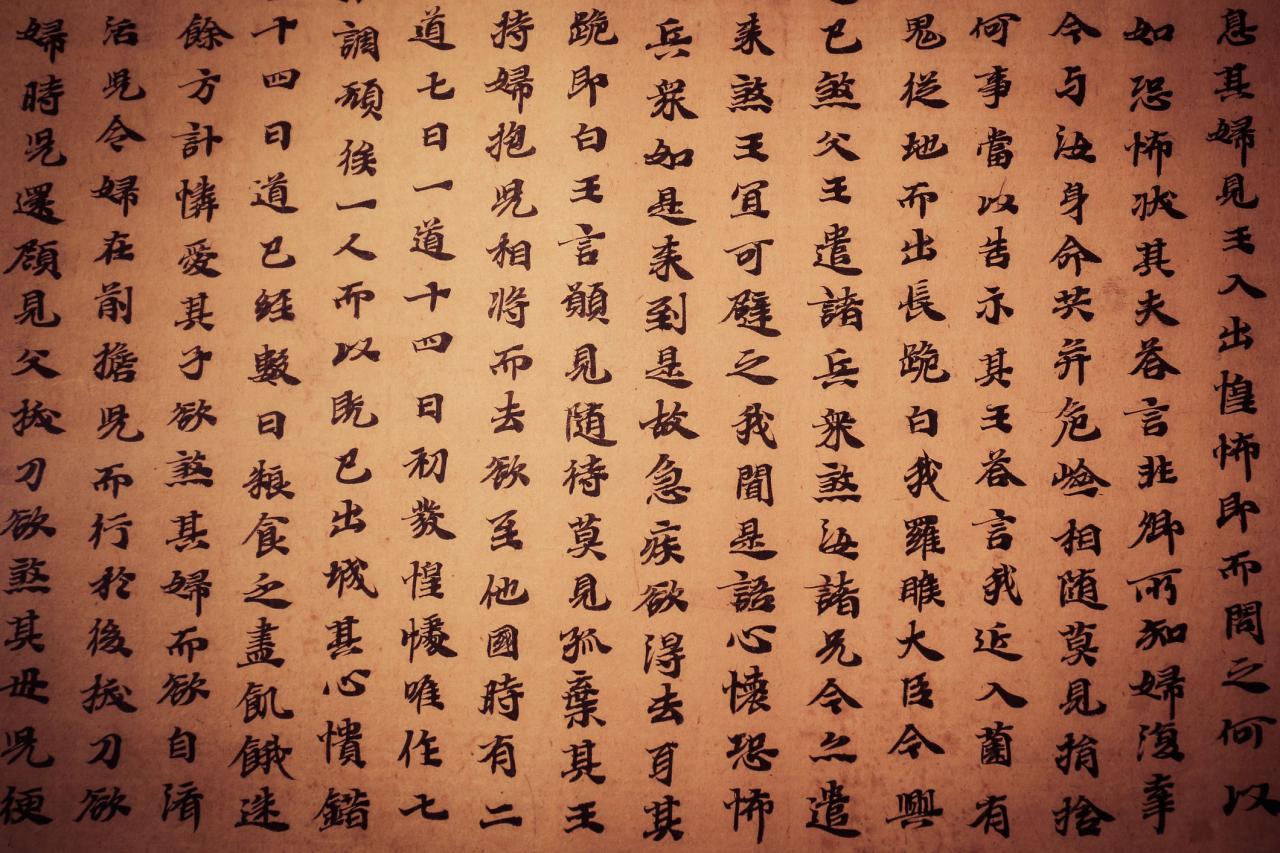 息其婦見王入出惶怖即而問之何以
如恐怖狀其夫荅言非卿所知婦復牽
今与汝身命共并危嶮相随莫見捐捨
何事當以告示其王荅言我近入薗有
鬼從地而出長跪白我羅睺大臣今興
已煞父王遣諸兵衆煞汝諸兄今亦遣
来煞王宜可避之我聞是語心懷恐怖
兵衆如是来到是故急疾欲得去耳其
跪即白王言願見随待莫見孤棄其王
持婦抱兒相將而去欲至他國時有二
道七日一道十四日初發惶懅唯作七
調須俟一人而以既已出城其心憒錯
十四日道已經數日粮食乏盡飢餓迷
餘方計憐愛其子欲煞其婦而欲自濟
活兒令婦在前擔兒而行於後拔刀欲
婦時兒還顧見父拔刀欲煞其母兒便